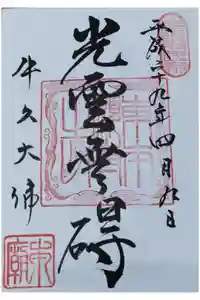 平成二十九年四月九日
光雲無碍
牛久大佛